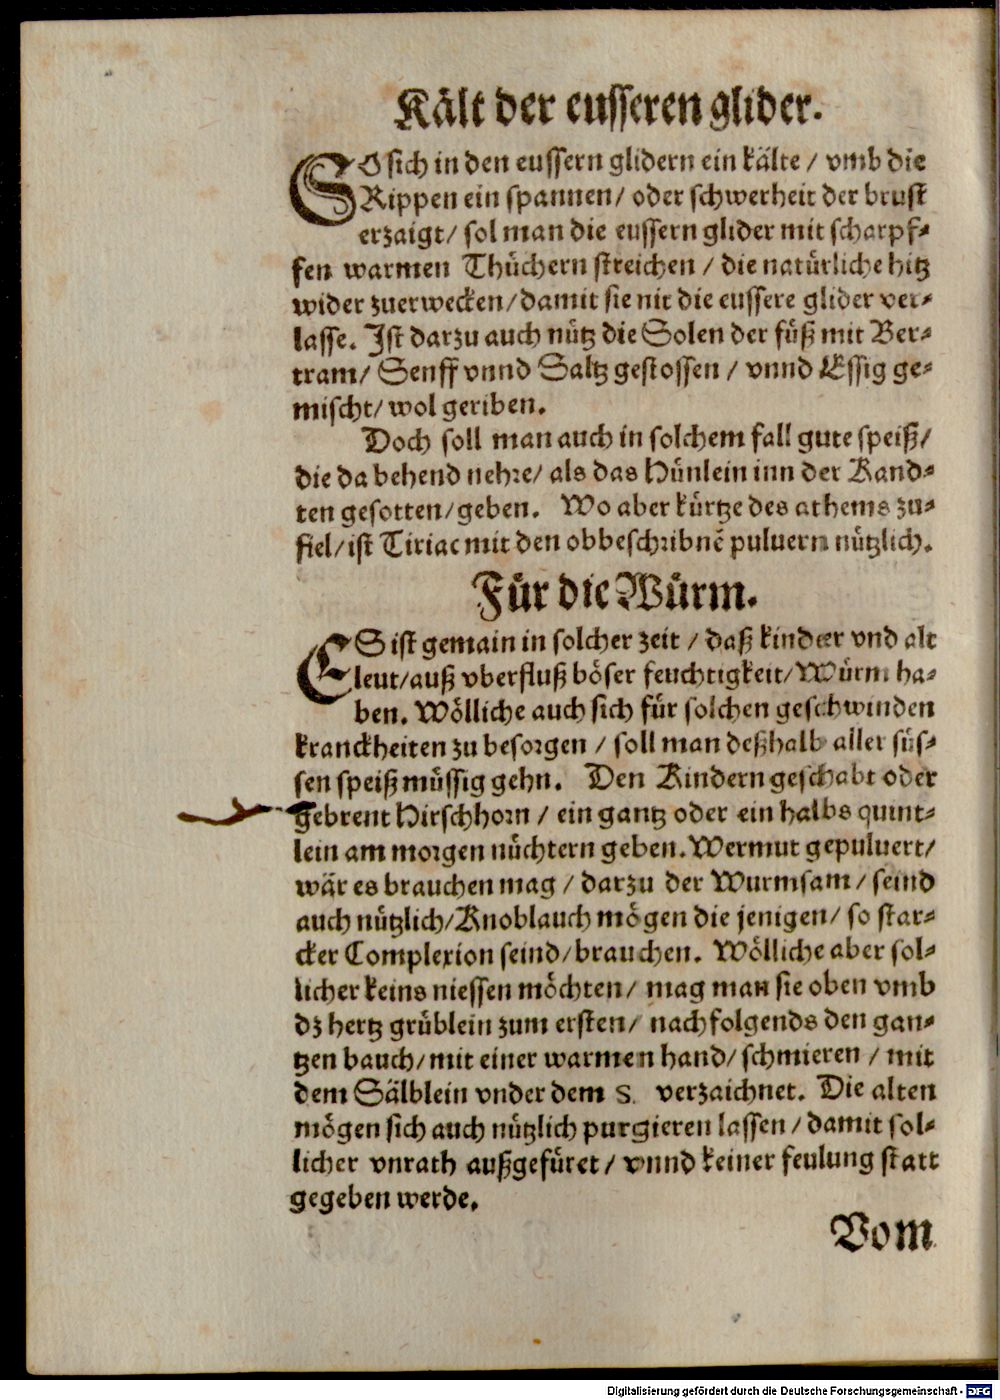 Kält der eusseren glider.
SO sich in den eussern glidern ein kälte / vmb die
Rippen ein spannen / oder schwerheit der brust
erzaigt / sol man die eussern glider mit scharpf⸗
fen warmen Thüchern streichen / die natürliche hitz
wider zuerwecken / damit sie nit die eussere glider ver⸗
lasse. Ist darzu auch nütz die Solen der füß mit Ber⸗
tram / Senff vnnd Saltz gestossen / vnnd Essig ge⸗
mischt / wol geriben.
Doch soll man auch in solchem fall gute speiß /
die da behend nehre / als das Hünlein inn der Kand⸗
ten gesotten / geben. Wo aber kürtze des athems zu⸗
fiel / ist Tiriac mit den obbeschribnẽ puluern nützlich.
Für die Würm.
ES ist gemain in solcher zeit / daß kinder vnd alt
leut / auß vberfluß böser feuchtigkeit / Würm ha⸗
ben. Wölliche auch sich für solchen geschwinden
kranckheiten zu besorgen / soll man deßhalb aller süs⸗
sen speiß müssig gehn. Den Kindern geschabt oder
gebrent Hirschhorn / ein gantz oder ein halbs quint⸗
lein am morgen nüchtern geben. Wermut gepuluert /
wär es brauchen mag / darzu der Wurmsam / seind
auch nützlich / Knoblauch mögen die jenigen / so star⸗
cker Complexion seind / brauchen. Wölliche aber sol⸗
licher keins niessen möchten / mag man sie oben vmb
dz hertz grüblein zum ersten / nachfolgends den gan⸗
tzen bauch / mit einer warmen hand / schmieren / mit
dem Sälblein vnder dem S. verzaichnet. Die alten
mögen sich auch nützlich purgieren lassen / damit sol⸗
licher vnrath außgefüret / vnnd keiner feulung statt
gegeben werde.
Vom
Digitalisierung gefördert durch die Deutsche Forschungsgemeinschaft - DFG